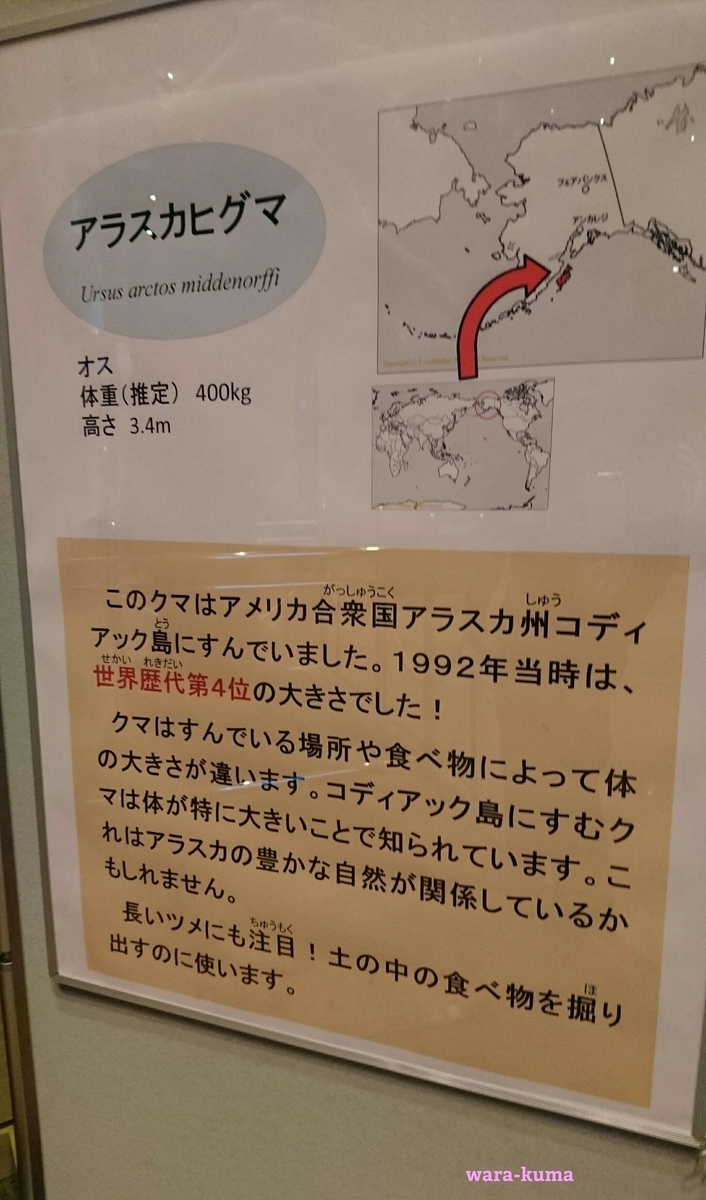 アラスカヒグマ
Ursus arctos middenorffi
オス
体重(推定) 400kg
高さ 3.4m
フェアバンクス
アンカレジ
がっしゅうこく しゅう
このクマはアメリカ合衆国アラスカ州コディ
とう
アック島にすんでいました。1992年当時は、
せかい れきだい
世界歴代第4位の大きさでした!
クマはすんでいる場所や食べ物によって体
の大きさが違います。コディアック島にすむク
マは体が特に大きいことで知られています。こ
れはアラスカの豊かな自然が関係しているか
もしれません。
ちゅうもく
長いツメにも注目!土の中の食べ物を掘り
ほ
出すのに使います。
wara-kuma